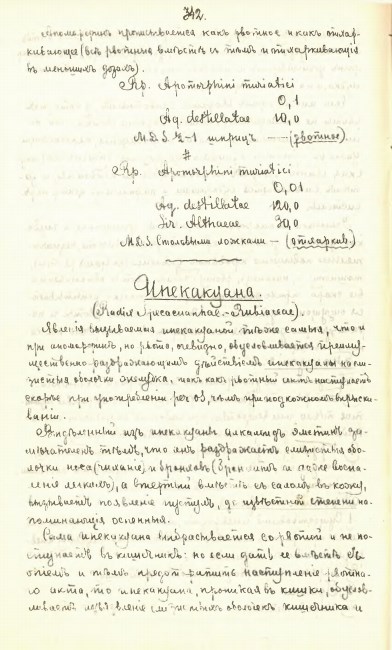 342.
Апоморфинъ прописывается какъ рвотное и какъ отхар-
кивающее (всѣ рвотныя вмѣстѣ съ тѣмъ и отхаркивающія
въ меньшихъ дозахъ).
Rp. Apomorphini muriatici
0,1
Aq. destillatae 10,0
M.D.S. ½-1 шприцъ — (рвотное)
#
Rp. Apomorphini muriatici
0,01
Aq. destillatae 120,0
Sir. Althaeae 30,0
M.D.S. Столовыми ложками — (отхаркив.)
Ипекакуана.
(Radix Ipecacuanhae - Rubiaceae).
Явленія вызываемыя ипекакуаной тѣже самыя, что и
при апоморфинѣ, но рвота, очевидно, обусловливается преиму-
щественно раздражающимъ дѣйствіемъ ипекакуаны на сли-
зистую оболочку желудка, такъ какъ рвотный актъ наступаетъ
скорѣе при употребленіи per os, чѣмъ при подкожномъ впрыски-
ваніи.
Выдѣленный изъ ипекакуаны алкалоидъ эметинъ за-
мѣчателенъ тѣмъ, что онъ раздражаетъ слизистыя обо-
лочки носа (чиханіе) и бронховъ (бронхитъ и даже воспа-
леніе легкихъ), а втертый вмѣстѣ съ саломъ въ кожу,
вызываетъ появленіе пустулъ, до извѣстной степени на-
поминающія оспенныя.
Сама ипекакуана выбрасывается со рвотой и не по-
ступаетъ въ кишечникъ: но если дать ее вмѣстѣ съ
опіемъ и тѣмъ предотвратить наступленіе рвотна-
го акта, то ипекакуана, проникая въ кишки, обусло-
вливаетъ слизистыхъ оболочекъ кишечника и